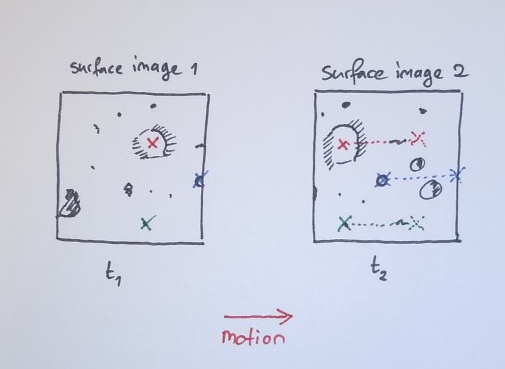 surface image 1
surface image 2
t1
t2
motion